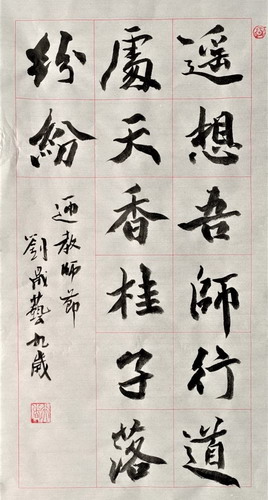 遥想吾師行道
處天香桂子落
紛紛
迎教師節
劉晟藝九歲